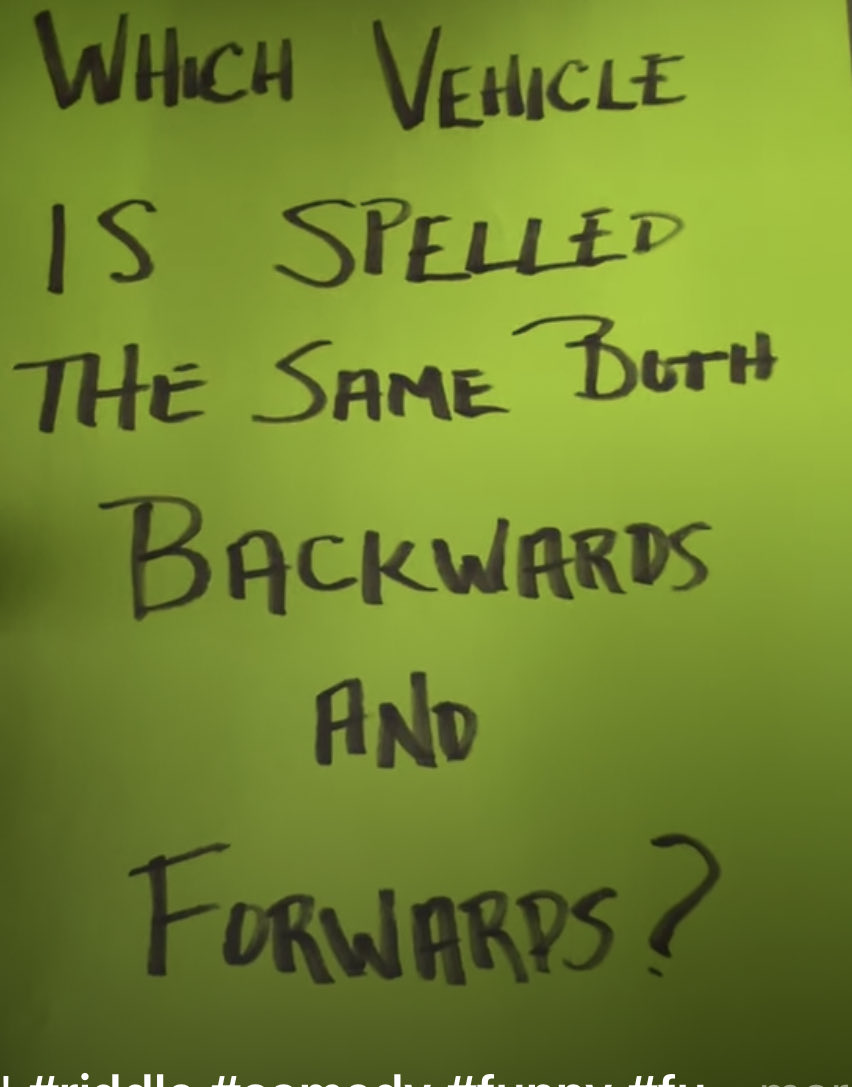 WHICH VEHICLE
IS SPELLED
THE SAME BOTH
BACKWARDS
AND
FORWARDS?
#riddle #comedy #funny #fu